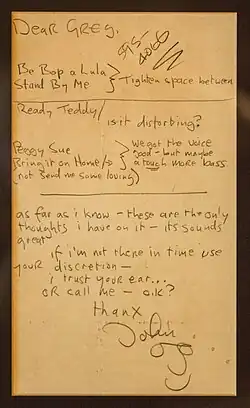 Dear Greg.
915-
4066
Be Bop a Lula
Stand By Me } Tighten space between
Ready Teddy/
is it distorbing?
Peggy Sue
Bring it on Home/to
(not Send me some loving)
} We got the voice
good - but maybe
a touch more bass
as far as i know - these are the only
thoughts i have on it - its sounds
great
if i'm not there in time use
your discretion -
i trust your ear...
OR call me - o.k?
thanx
John